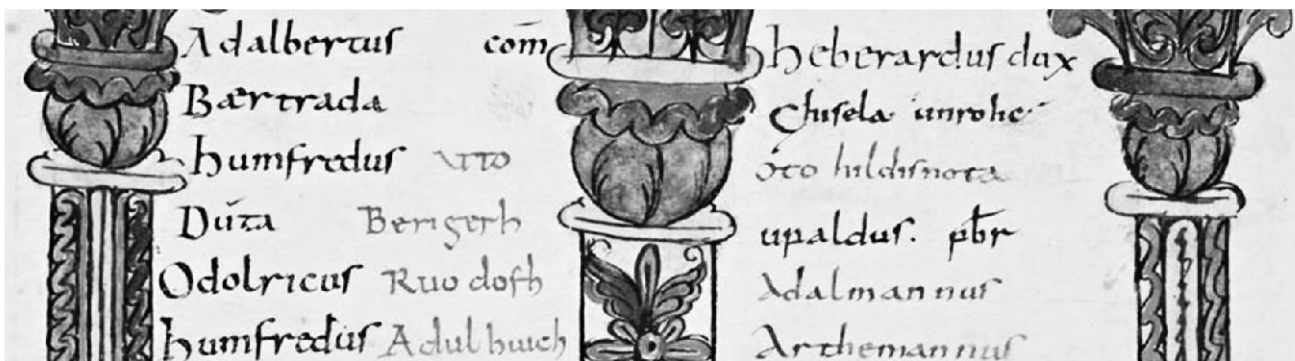 Adalbertus com̄
Bærtrada
humfredus Atto
Dūta Berigerh
Odolricus Ruodolfh
humfredus Adulhuuch
heberardus dux
Ghisela unrohc
oto hildisnota
upaldus. pb̄r
Adalmannus
Arthemannus